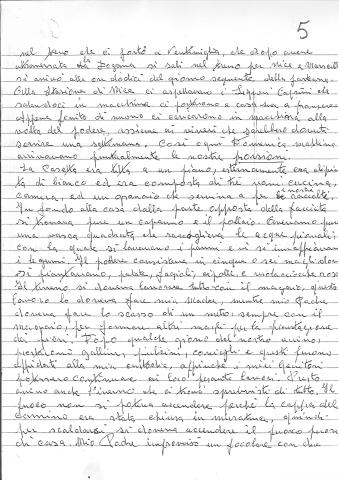 5
nel treno che ci portò a Ventimiglia, che dopo avere
attraversata la Dogana si salì nel treno per Nice e Marseille
si arrivò alle ore dodici del giorno seguente della partenza.
Alla stazione di Nice ci aspettavano i Signori che
salendoci in macchina ci portarono a casa sua a
appena finito di ci caricarono in macchina alla
volta del podere, assieme ai viveri che sarebbero dovuti
servire una settimana. Così ogni Domenica mattina
arrivavano puntualmente le nostre porzioni.
La Casetta era tutta a un piano, esternamente era dipin
ta di bianco ed era composta di tre vani: cucina,
camera, ed un granaio che serviva a per i nostri raccolti.
In fondo alla casa dalla parte opposta della facciata
si trovava pure un capanno e il pollaio. Avevamo pure
una vasca quadrata che raccoglieva le acque piovane
con la quale si lavavano i panni e vi si innaffiavano
i legumi. Il podere consisteva in cinque o sei dove
si piantavano, patate, fagioli, cipolle, e
Il terreno si doveva lavorare tutto con il magaio, questo
lavoro lo doveva fare mia Madre, mentre mio Padre
doveva fare lo scasso di un metro, sempre con il
magaio, per formare altri per la piantagione
dei fiori. Dopo qualche giorno del nostro arrivo,
portarono galline, pulcini, conigli e questi furono
affidati alla mia custodia, affinché i miei Genitori
potessero continuare ai loro pesanti lavori. Presto
arrivò anche l'inverno che ci trovò sprovvisti di tutto. Il
fuoco non si poteva accendere perché la cappa del
cammino era stata chiusa in muratura, quindi
per scaldarsi si doveva accendere il fuoco fuori
di casa. Mio Padre improvvisò un focolare con due